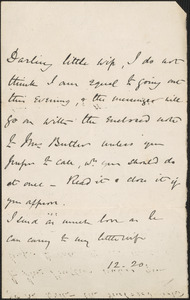 Darling little wife, I do not
think I am equal to going out
this Evening, & the messenger will
go on with the enclosed note
to Mrs Butler unless you
prefer to call, wh. you should do
at once — Read it & close it if
you approve.
I send as much love as he
can carry to my little wife
12.20.